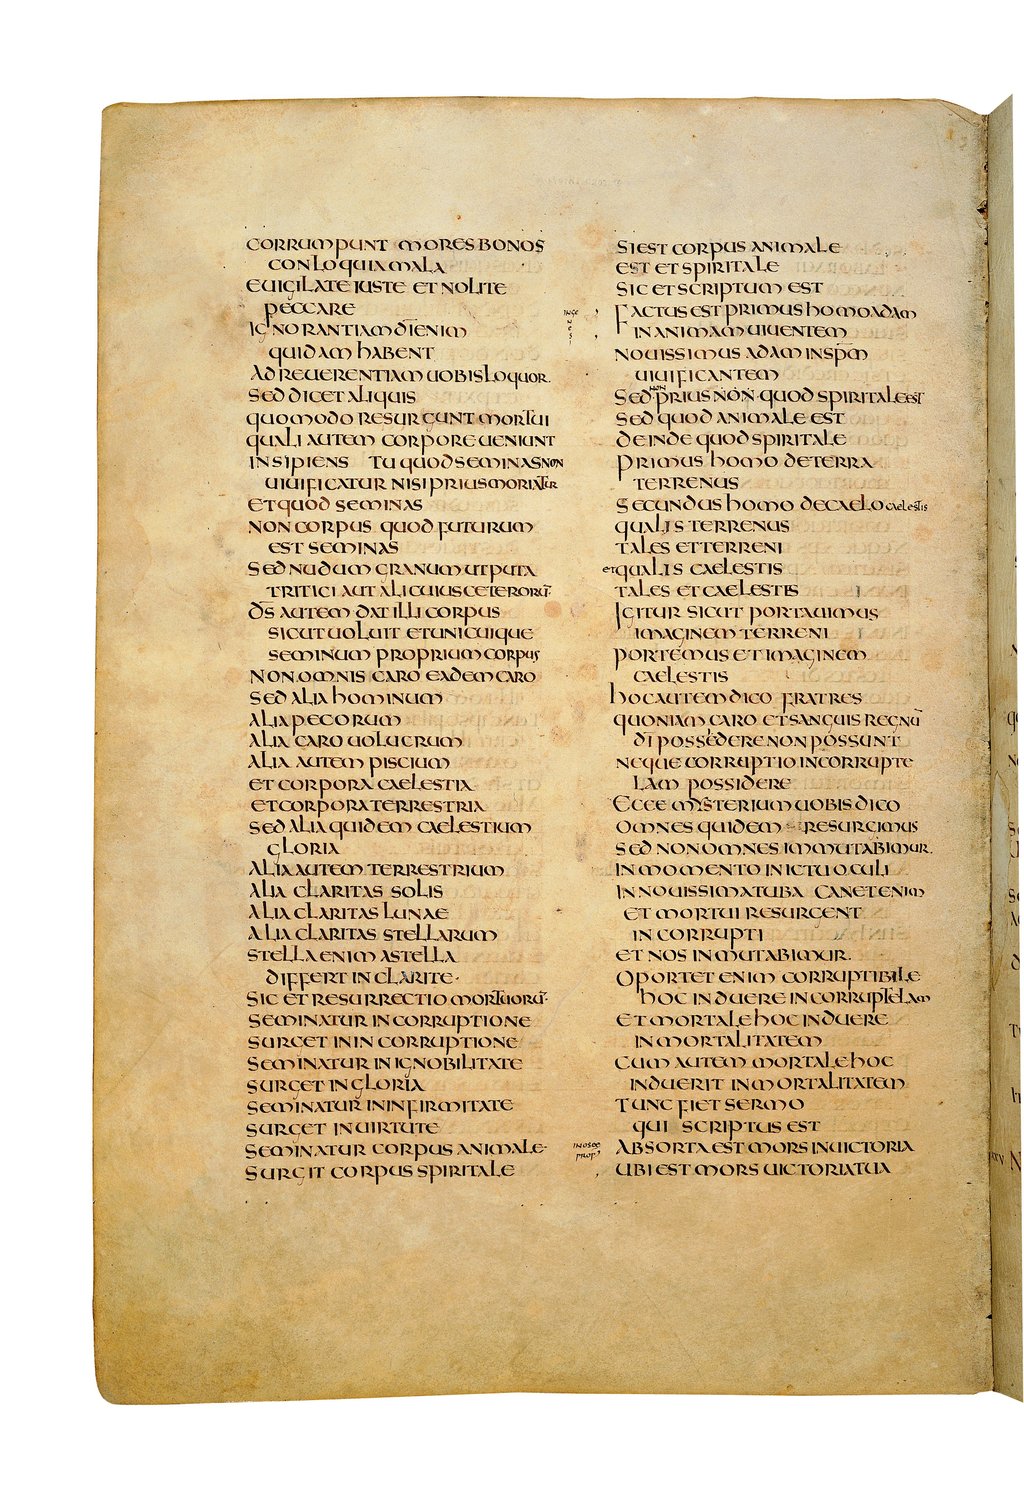 CORRUMPUNT MORES BONOS
CONLOQUIA MALA
EUIGILATE IUSTE ET NOLITE
PECCARE
IGNORANTIAM DĪ ENIM
QUIDAM HABENT
AD REUERENTIAM UOBIS LOQUOR.
SED DICET ALIQUIS
QUOMODO RESURGUNT MORTUI
QUALI AUTEM CORPORE UENIUNT
INSIPIENS TU QUOD SEMINAS NON
UIUIFICATUR NISI PRIUS MORIATUR
ET QUOD SEMINAS
NON CORPUS QUOD FUTURUM
EST SEMINAS
SED NUDUM GRANUM UT PUTA
TRITICI AUT ALICUIUS CETERORŪ·
D̄S AUTEM DAT ILLI CORPUS
SICUT UOLUIT ET UNICUIQUE
SEMINUM PROPRIUM CORPUS
NON OMNIS CARO EADEM CARO
SED ALIA HOMINUM
ALIA PECORUM
ALIA CARO UOLUCRUM
ALIA AUTEM PISCIUM
ET CORPORA CAELESTIA
ET CORPORA TERRESTRIA
SED ALIA QUIDEM CAELESTIUM
GLORIA
ALIA AUTEM TERRESTRIUM
ALIA CLARITAS SOLIS
ALIA CLARITAS LUNAE
ALIA CLARITAS STELLARUM
STELLA ENIM A STELLA
DIFFERT IN CLARITE·
SIC ET RESURRECTIO MORTUORŪ·
SEMINATUR IN CORRUPTIONE
SURGET IN INCORRUPTIONE
SEMINATUR IN IGNOBILITATE
SURGET IN GLORIA
SEMINATUR IN INFIRMITATE
SURGET IN UIRTUTE
SEMINATUR CORPUS ANIMALE·
SURGIT CORPUS SPIRITALE
SI EST CORPUS ANIMALE
EST ET SPIRITALE
SIC ET SCRIPTUM EST
IN GE
NE
S
FACTUS EST PRIMUS HOMO ADAM
IN ANIMAM UIUENTEM
NOUISSIMUS ADAM IN SP̄M
UIUIFICANTEM
SED NON PRIUS NON QUOD SPIRITALE EST
SED QUOD ANIMALE EST
DEINDE QUOD SPIRITALE
PRIMUS HOMO DE TERRA
TERRENUS
SECUNDUS HOMO DE CAELO CAELESTIS
QUALIS TERRENUS
TALES ET TERRENI
ET QUALIS CAELESTIS
TALES ET CAELESTIS
IGITUR SICUT PORTAUIMUS
IMAGINEM TERRENI
PORTEMUS ET IMAGINEM
CAELESTIS
HOC AUTEM DICO FRATRES
QUONIAM CARO ET SANGUIS REGNŪ
DĪ POSSEDERE NON POSSUNT
NEQUE CORRUPTIO INCORRUPTE
LAM POSSIDERE
ECCE MYSTERIUM UOBIS DICO
OMNES QUIDEM RESURGIMUS
SED NON OMNES IMMUTABIMUR.
IN MOMENTO IN ICTU OCULI
IN NOUISSIMA TUBA CANET ENIM
ET MORTUI RESURGENT
INCORRUPTI
ET NOS INMUTABIMUR.
OPORTET ENIM CORRUPTIBILE
HOC INDUERE INCORRUPTELAM
ET MORTALE HOC INDUERE
INMORTALITATEM
CUM AUTEM MORTALE HOC
INDUERIT INMORTALITATEM
TUNC FIET SERMO
QUI SCRIPTUS EST
IN OSEE
PROP
ABSORTA EST MORS IN UICTORIA
UBI EST MORS UICTORIA TUA